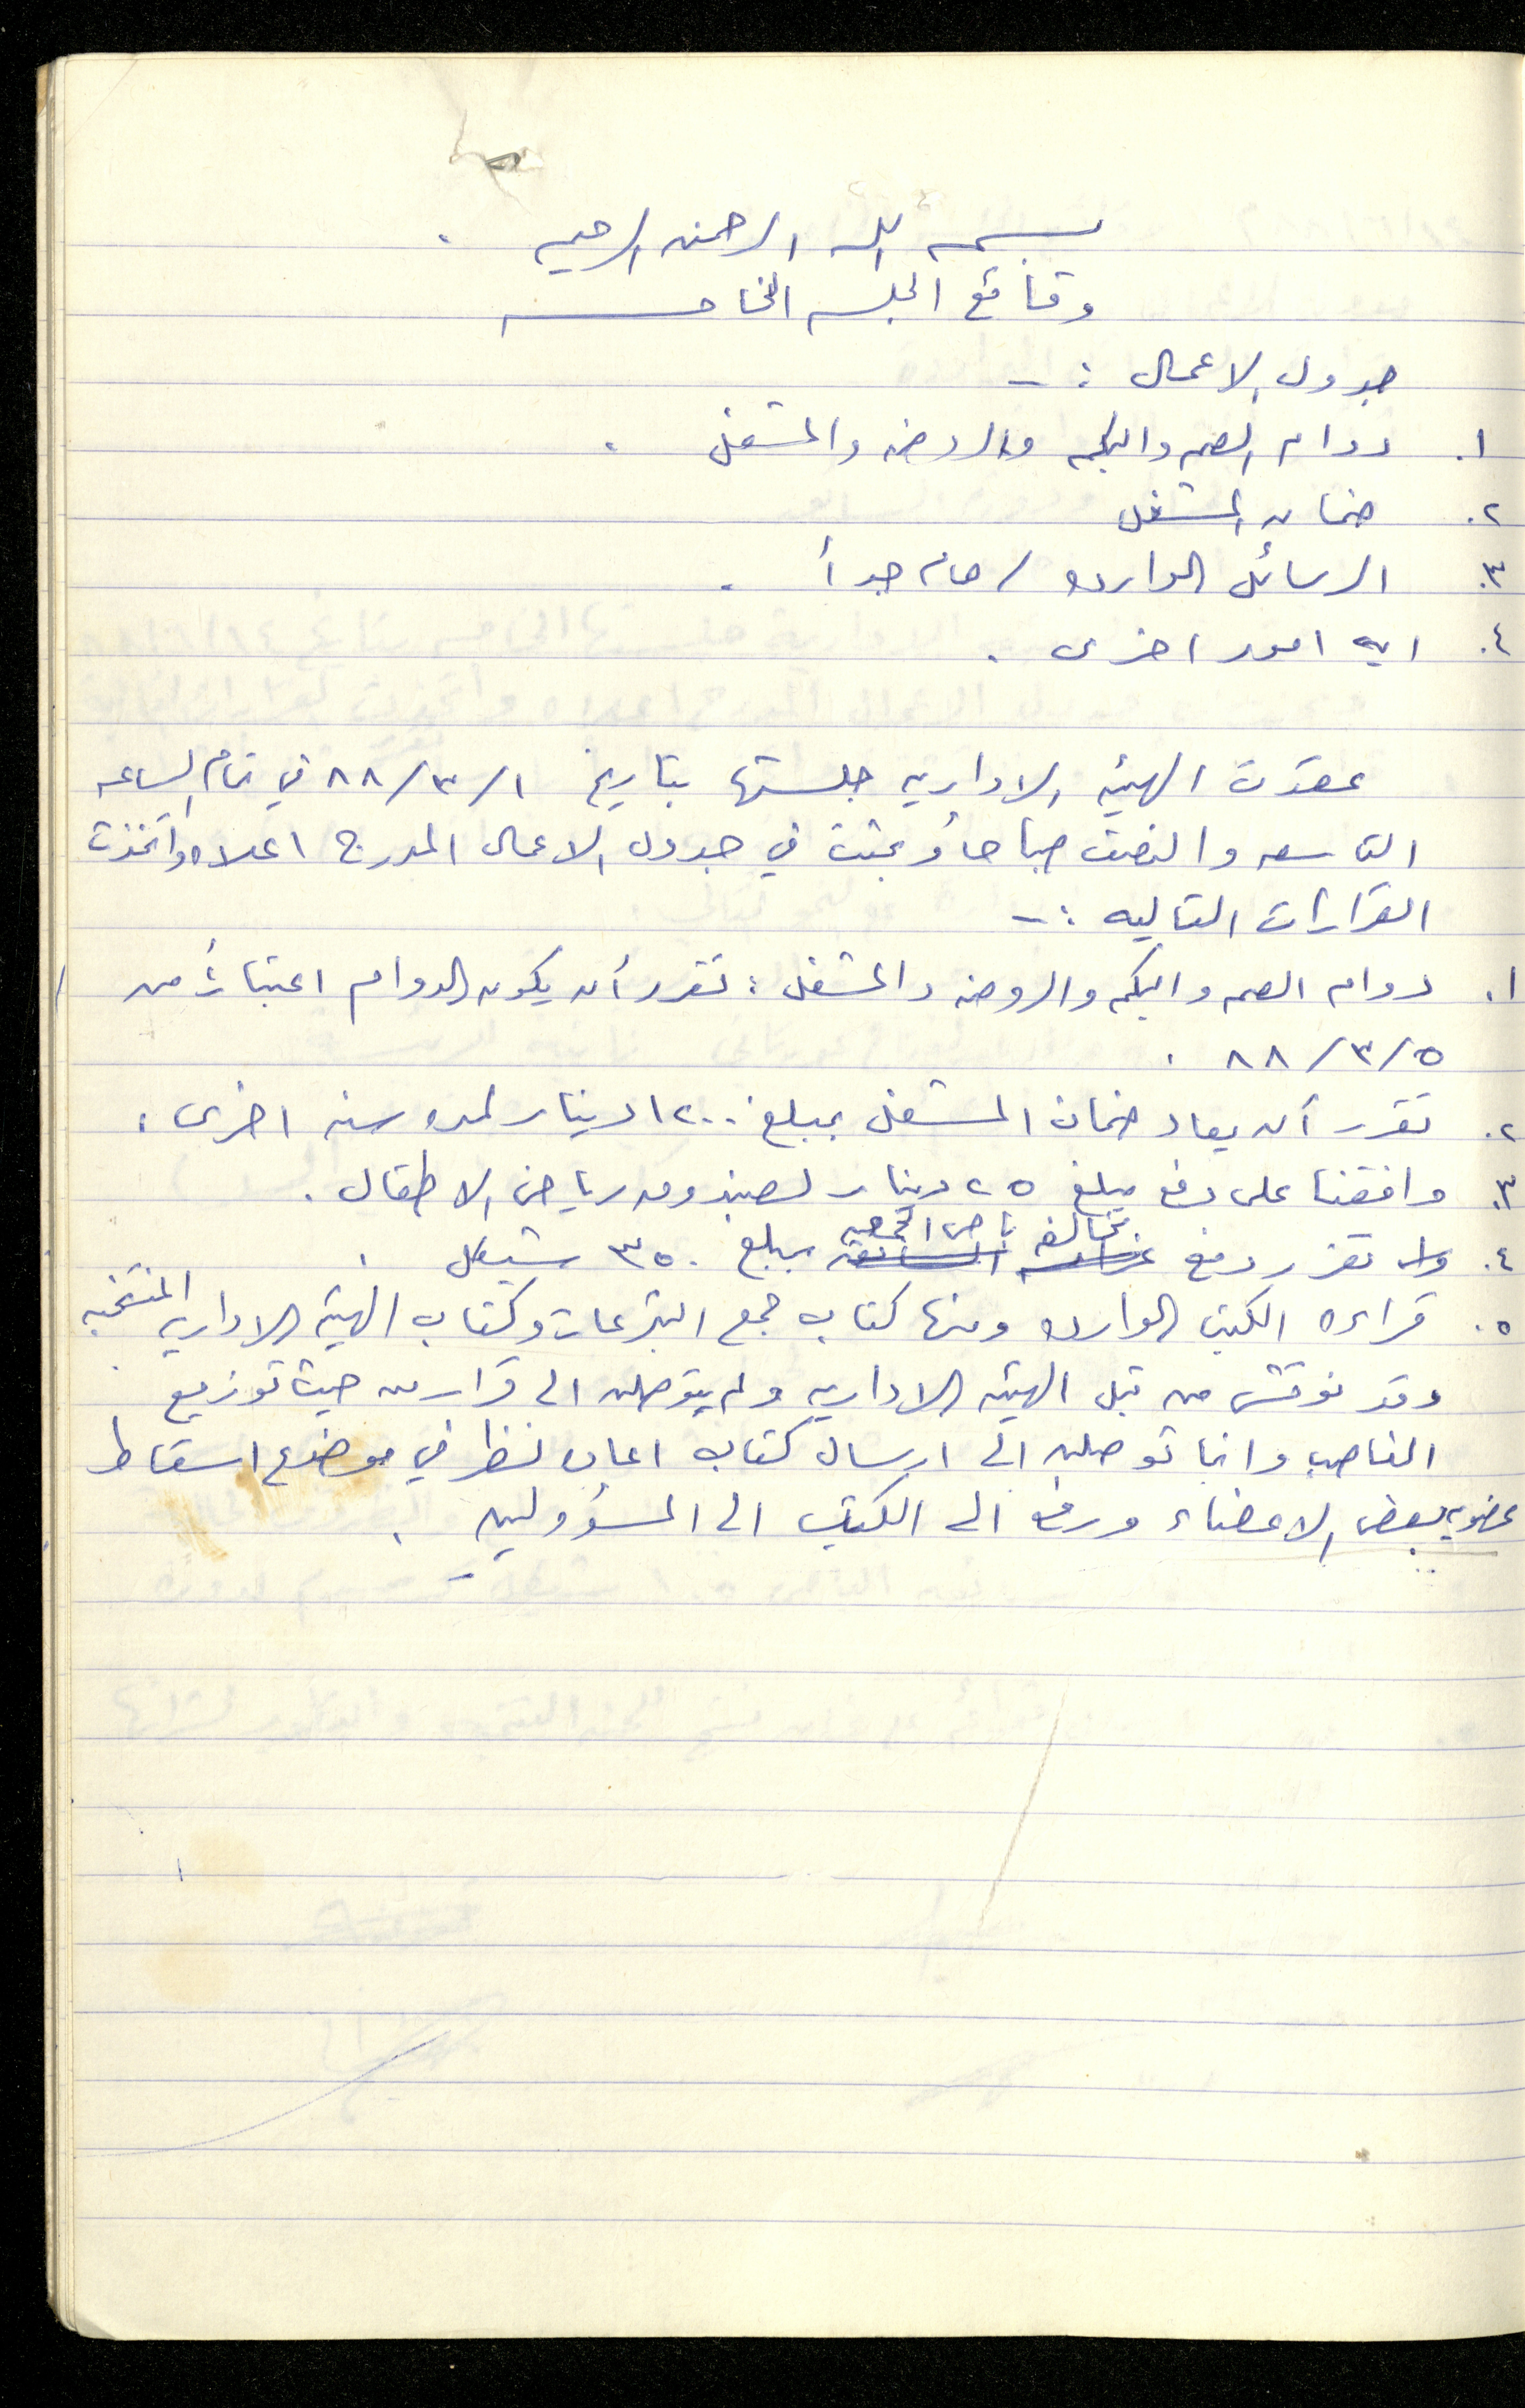 بسم الله الرحمن الرحيم .
وقائع الجلسه الخامسه
جدول الاعمال :-
١. دوام الصم والبكم والروضه والمشغل .
٢. ضمان المشغل
٣. الرسائل الوارده / هام جداً .
٤. ايه امور اخرى .
عقدت الهيئه الاداريه جلستها بتاريخ ١/٣/٨٨ في تمام الساعه
التاسعه والنصف صباحاً وبحثت في جدول الاعمال المدرج اعلاه واتخذت
القرارات التاليه :-
١. دوام الصم والبكم والروضه والمشغل : تقرر أن يكون الدوام اعتباراً من
٥/٣/٨٨ .
٢. تقرر أن يعاد ضمان المشغل بمبلغ ١٢٠٠ دينار لمده سنه اخرى .
٣. وافقنا على دفع مبلغ ٢٥ دينار لصندوق رياض الاطفال .
٤. تقرر دفع مخالفه باص الجمعيه بمبلغ ٣٥٠ شيقل .
٥. قراءه الكتب الوارده ومنها كتاب جمع التبرعات وكتاب الهيئه الاداريه المنتخبه
وقد نوقش من قبل الهيئه الاداريه ولم يتوصلن الى قرار من حيث توزيع
المناصب وانما توصلن الى ارسال كتاب اعاده نظر في موضوع اسقاط
عضويه بعض الاعضاء ورفع الى الكتب الى المسؤولين .